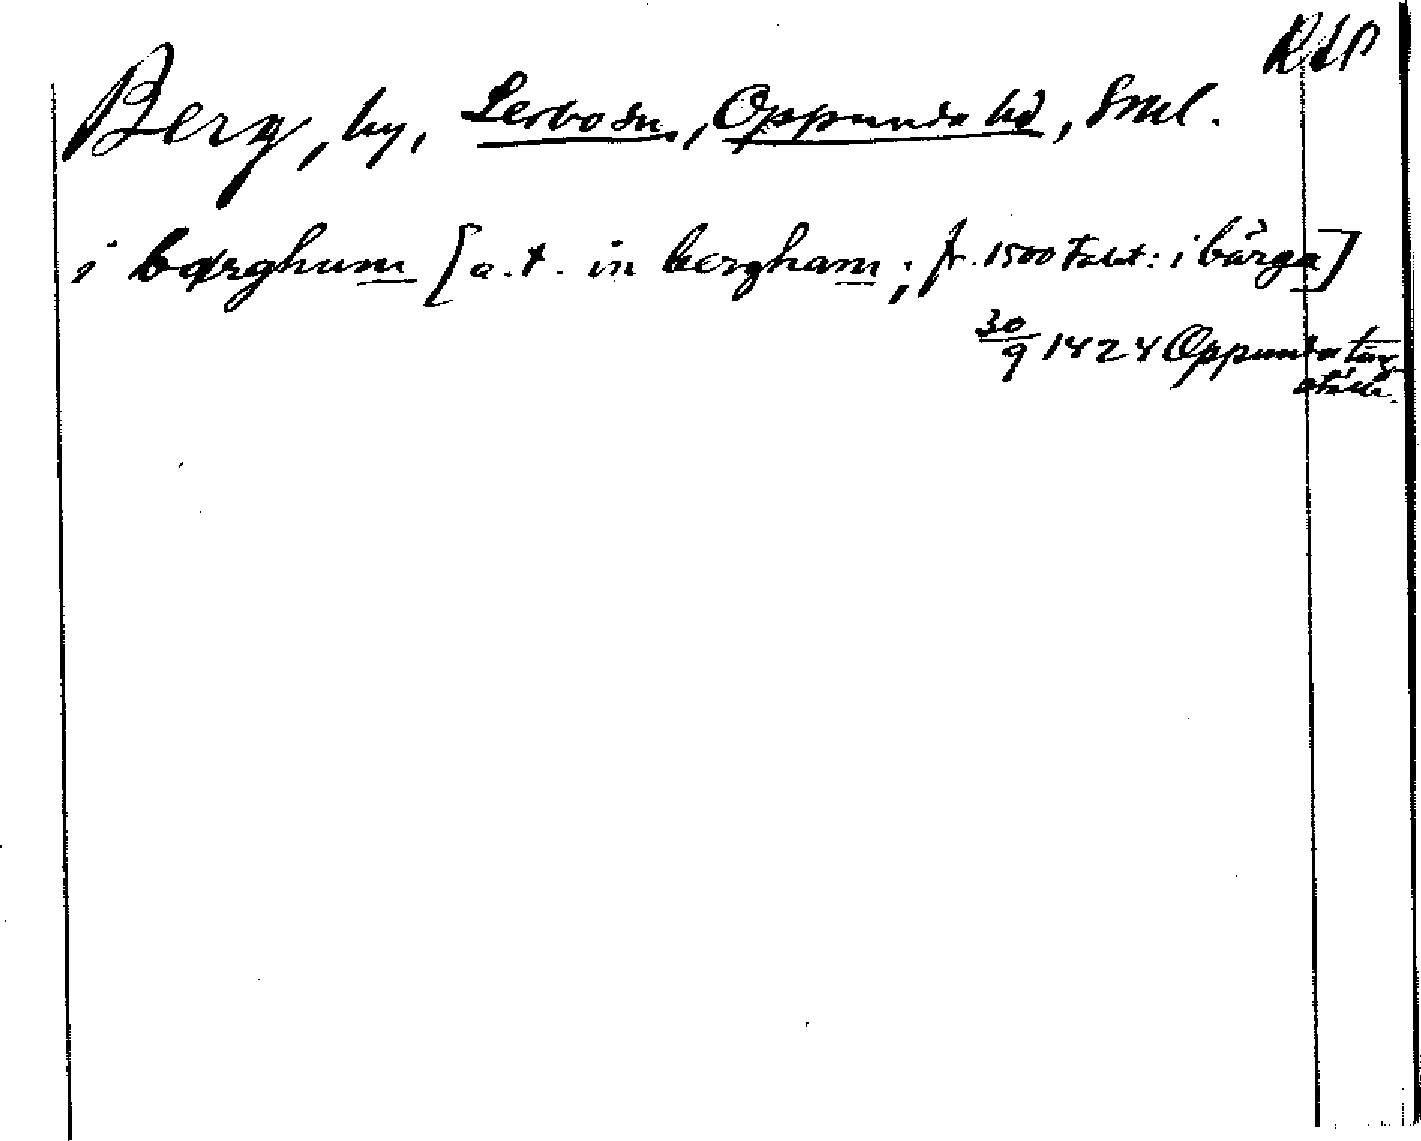 Berg, by, Lerbo sn., Oppunda hd, Sml.
i bærghum [a.t. in bergham; fr. 1500 talet: i bärga]
30/9 1424 Oppunda